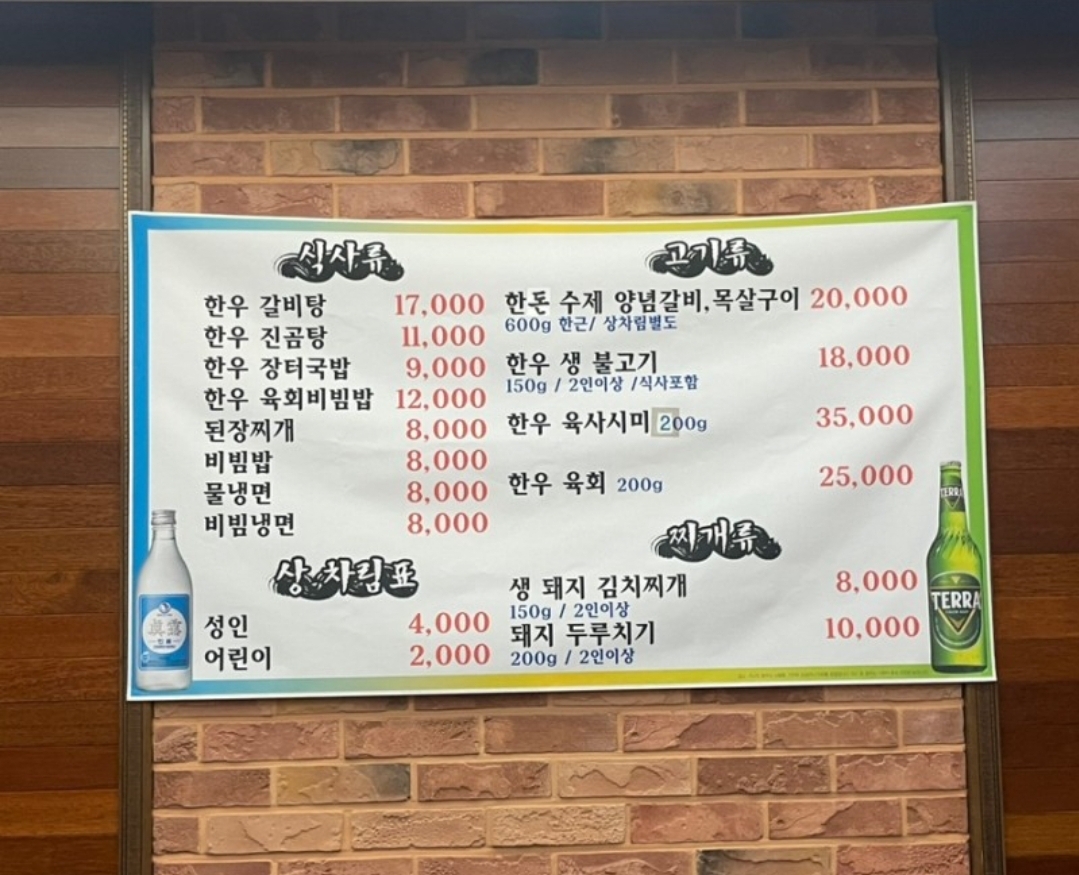 식사류
한우 갈비탕 17,000
한우 진곰탕 11,000
한우 장터국밥 9,000
한우 육회비빔밥 12,000
된장찌개 8,000
비빔밥 8,000
물냉면 8,000
비빔냉면 8,000
상차림표
성인 4,000
어린이 2,000
고기류
한돈 수제 양념갈비,목살구이 20,000
600g 한근/ 상차림별도
한우 생 불고기 18,000
150g / 2인이상 /식사포함
한우 육사시미 200g 35,000
한우 육회 200g 25,000
찌개류
생 돼지 김치찌개 8,000
150g / 2인이상
돼지 두루치기 10,000
200g / 2인이상
眞露
TERRA
TERRA